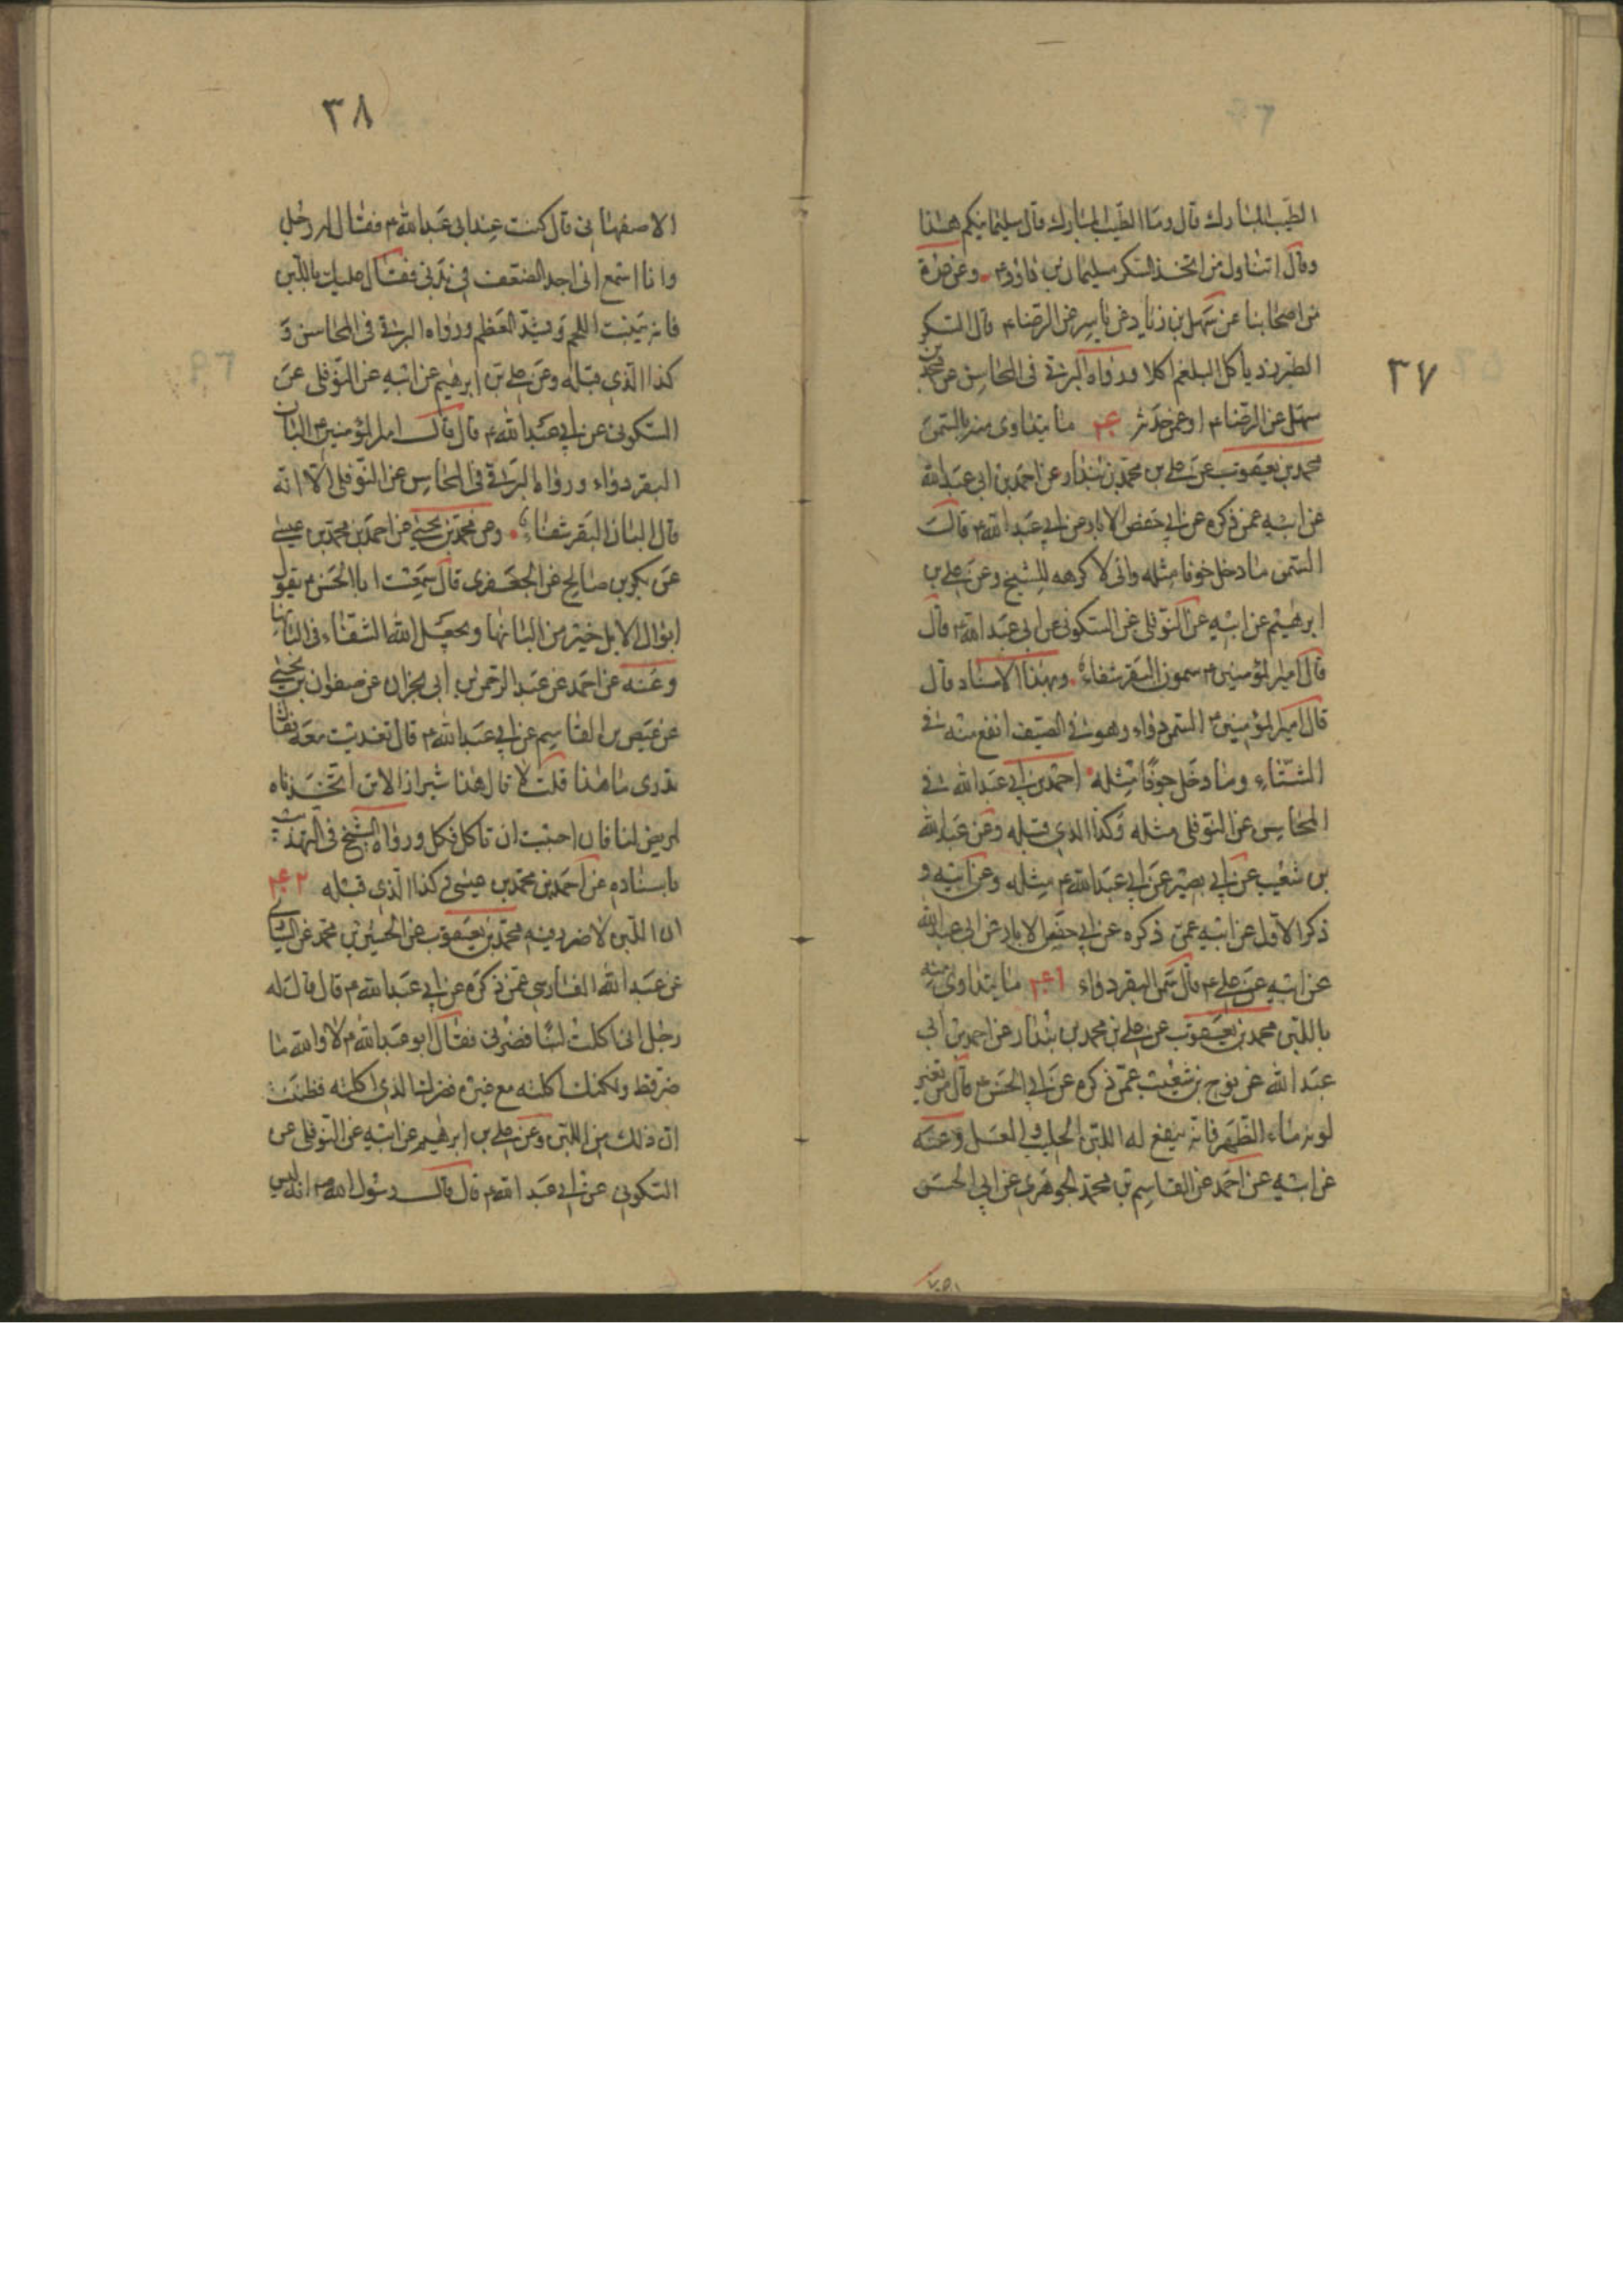 ٣٧
الطيب المبارك قال وما الطيب المبارك قال سليمانيكم هذا
وقال ان اول من اتخذ السكر سليمان بن داود ع وعن عدة
من اصحابنا عن سهل بن زياد عن ياسر عن الرضا ع قال السكر
الطبرزد ياكل البلغم اكلا ورواه البرقى فى المحاسن عن محمد بن
سهل عن الرضا ع او عمن حدثه ما يتداوى منه بالسمن
محمد بن يعقوب عن علي بن محمد بن بندار عن احمد بن ابى عبد الله
عن ابيه عمن ذكره عن ابي حفص الابار عن ابي عبد الله ع قال
السمن ما دخل جوفا مثله وانى لاكرهه للشيخ وعن علي بن
ابرهيم عن ابيه عن النوفلى عن السكونى عن ابى عبد الله ع قال
قال امير المؤمنين ع سمون البقر شفاء وبهذا الاسناد قال
قال امير المؤمنين ع السمن دواء وهو في الصيف انفع منه في
الشتاء وما دخل جوفا مثله احمد بن ابي عبد الله في
المحاسن عن النوفلى مثله وكذا الذي قبله وعن عبد الله
بن شعيب عن ابي بصير عن ابي عبد الله ع مثله وعن ابيه و
ذكر الاول عن ابيه عمن ذكره عن ابي حفص الابار عن ابى عبد الله
عن ابيه عن علي ع قال سمن البقر دواء ما يتداوى منه
باللبن محمد بن يعقوب عن علي بن محمد بن بندار عن احمد بن ابى
عبد الله عن نوح بن شعيب عمن ذكره عن ابي الحسن ع قال من تغير
لونه ماء الظهر فانه ينفع له اللبن الحليب و العسل وعنه
عن ابيه عن احمد عن القاسم بن محمد الجوهري عن ابي الحسن
٣٨
الاصفهانى قال كنت عند ابى عبد الله ع فقال له رجل
وانا اسمع انى اجد الضعف فى بدنى فقال عليك باللبن
فانه ينبت اللحم ويشد العظم ورواه البرقى فى المحاسن و
كذا الذي قبله وعن علي بن ابرهيم عن ابيه عن النوفلى عن
السكونى عن ابي عبد الله ع قال قال امير المؤمنين ع البان
البقر دواء ورواه البرقى فى المحاسن عن النوفلى الا انه
قال البان البقر شفاء وعن محمد بن يحيى عن احمد بن محمد بن عيسى
عن بكر بن صالح عن الجعفرى قال سمعت ابا الحسن ع يقول
ابوال الابل خير من البانها ويجعل الله الشفاء فى البانها
وعنه عن احمد عن عبد الرحمن بن ابى نجران عن صفوان بن يحيى
عن عيص بن القاسم عن ابي عبد الله ع قال تغديت معه فقال
تدرى ما هذا قلت لا قال هذا شيراز الاتن اتخذناه
لمريض لنا فان احببت ان تاكل فكل ورواه الشيخ فى التهذيب
باسناده عن احمد بن محمد بن عيسى كذا الذي قبله
ان اللبن لا ضرر فيه محمد بن يعقوب عن الحسين بن محمد عن السياري
عن عبد الله الفارسي عمن ذكره عن ابي عبد الله ع قال قال له
رجل انى اكلت لبنا فضرنى فقال ابو عبد الله ع لا والله ما
ضر قط ولكنك اكلته مع غيره فضرك الذي اكلته فظننت
ان ذلك من اللبن وعن علي بن ابرهيم عن ابيه عن النوفلى عن
السكوني عن ابي عبد الله ع قال قال رسول الله ص انه ليس